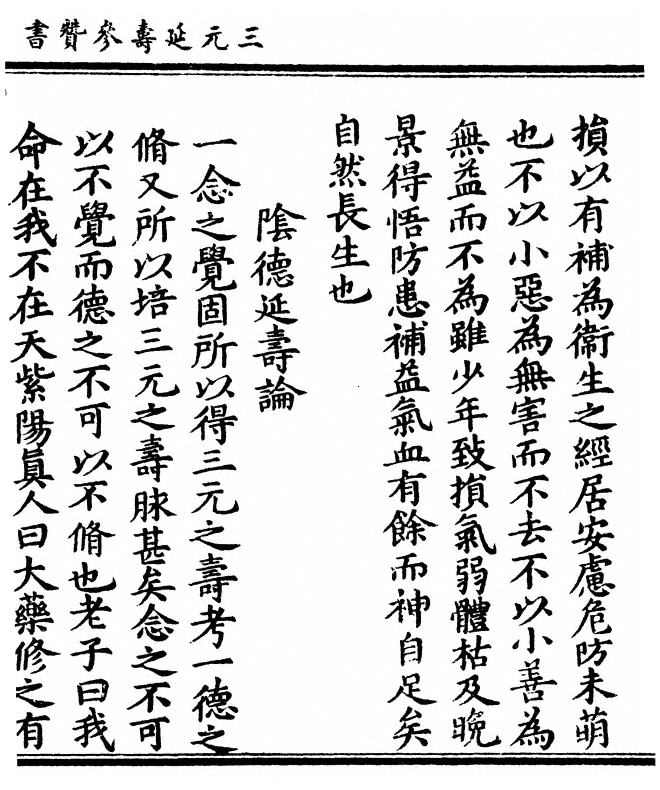 三元延壽參贊書
損以有補為衞生之經居安慮危防未萌
也不以小惡為無害而不去不以小善為
無益而不為雖少年致損氣弱體枯及晚
景得悟防患補益氣血有餘而神自足矣
自然長生也
陰德延壽論
一念之覺固所以得三元之壽考一德之
脩又所以培三元之壽脉甚矣念之不可
以不覺而德之不可以不脩也老子曰我
命在我不在天紫陽眞人曰大藥修之有